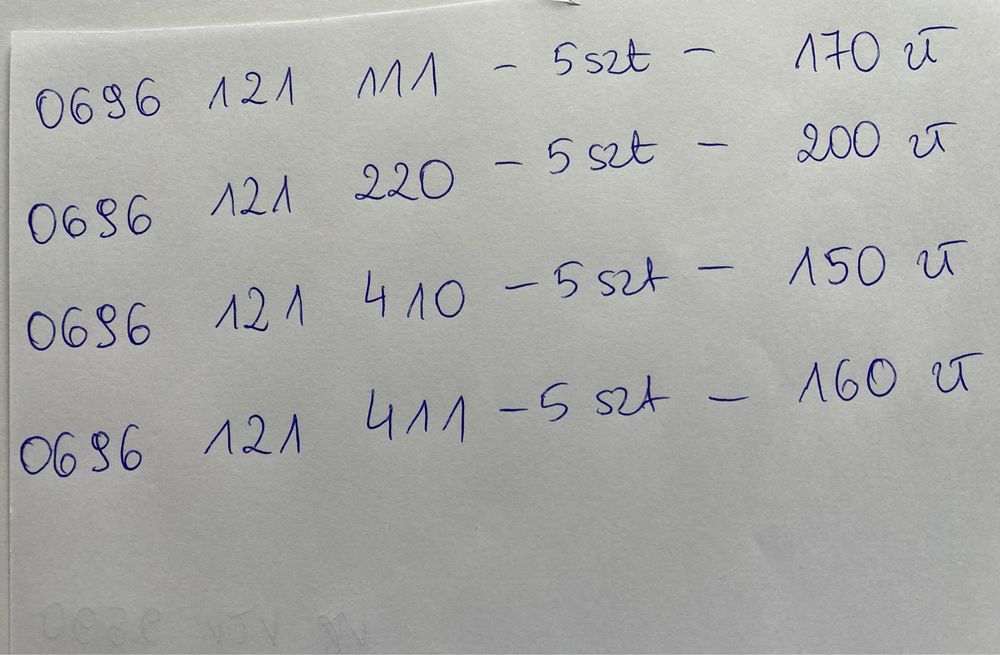 0696 121 111 - 5 szt - 170 zł
0696 121 220 - 5 szt - 200 zł
0696 121 410 - 5 szt - 150 zł
0696 121 411 - 5 szt - 160 zł